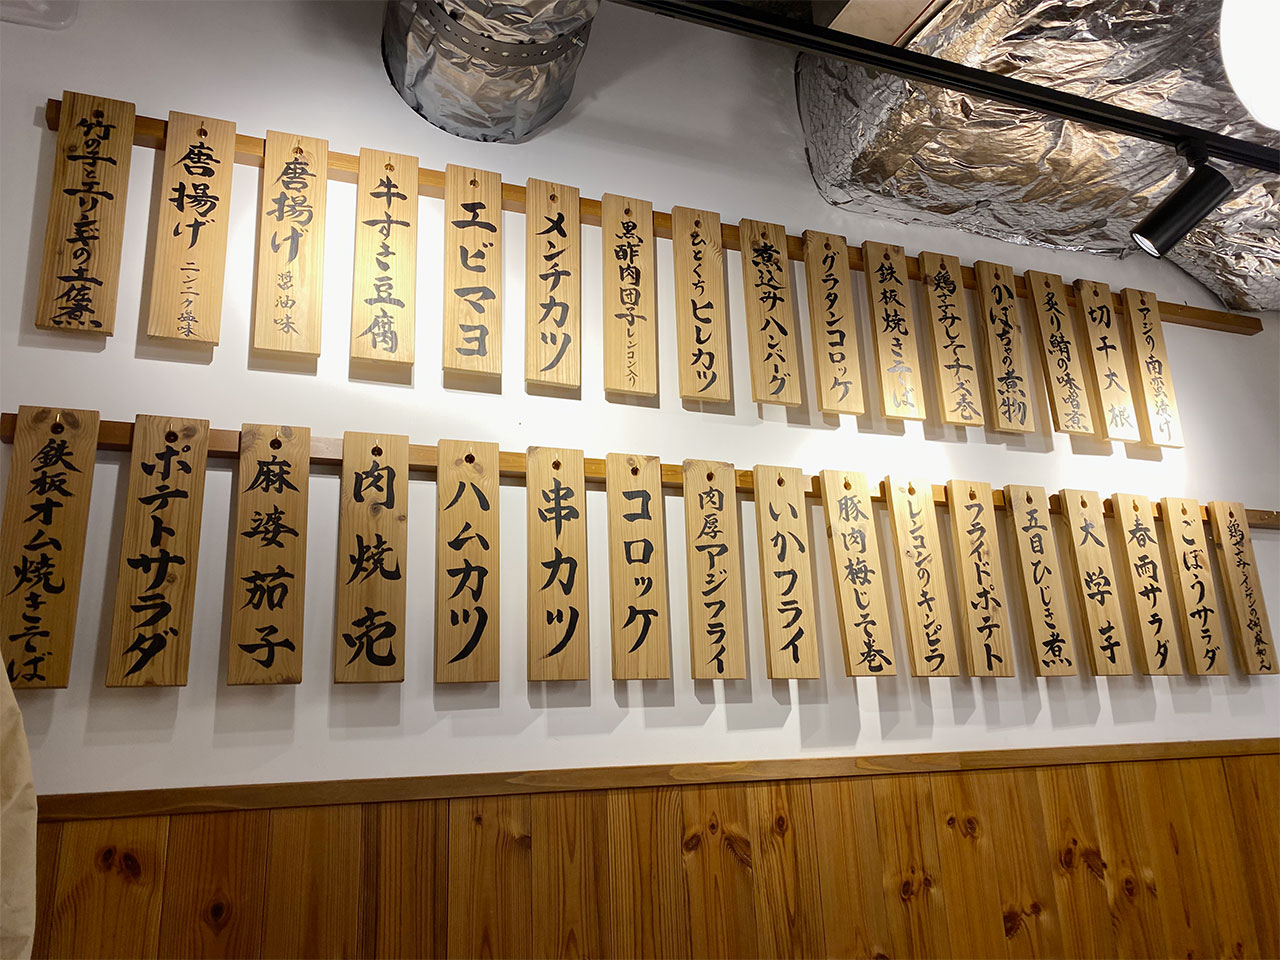 竹の子とエリンギの土佐煮
唐揚げ ニンニク塩味
唐揚げ 醤油味
牛すき豆腐
エビマヨ
メンチカツ
黒酢肉団子レンコン入り
ひとくちヒレカツ
煮込みハンバーグ
グラタンコロッケ
鉄板焼きそば
鶏ささみしそチーズ巻
かぼちゃの煮物
炙り鯖の味噌煮
切干大根
アジの南蛮漬け
鉄板オム焼きそば
ポテトサラダ
麻婆茄子
肉焼売
ハムカツ
串カツ
コロッケ
肉厚アジフライ
いかフライ
豚肉梅じそ巻
レンコンのキンピラ
フライドポテト
五目ひじき煮
大学芋
春雨サラダ
ごぼうサラダ
鶏ささみとインゲンの